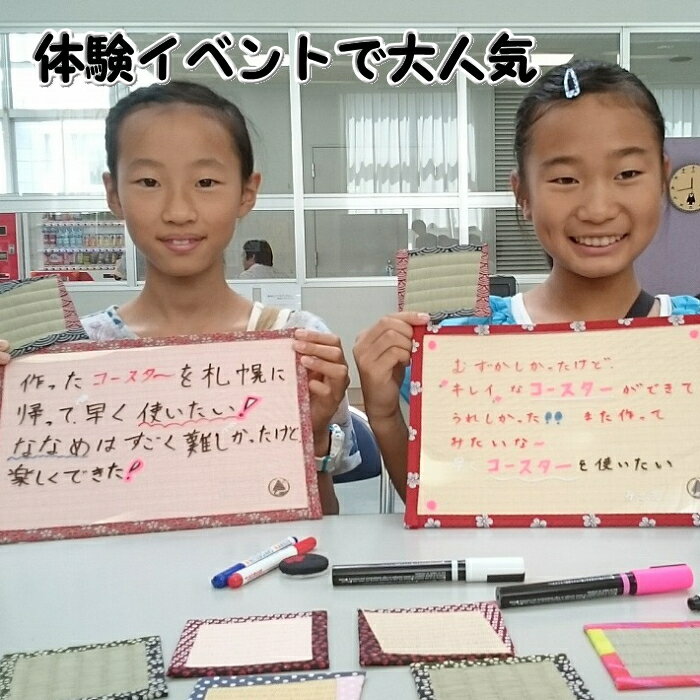 体験イベントで大人気
作ったコースターを札幌に
帰って、早く使いたい!
ななめはすごく難しかったけど
楽しくできた!
むずかしかったけど、
キレイなコースターができて
うれしかった!! また作って
みたいな〜
早くコースターを使いたい